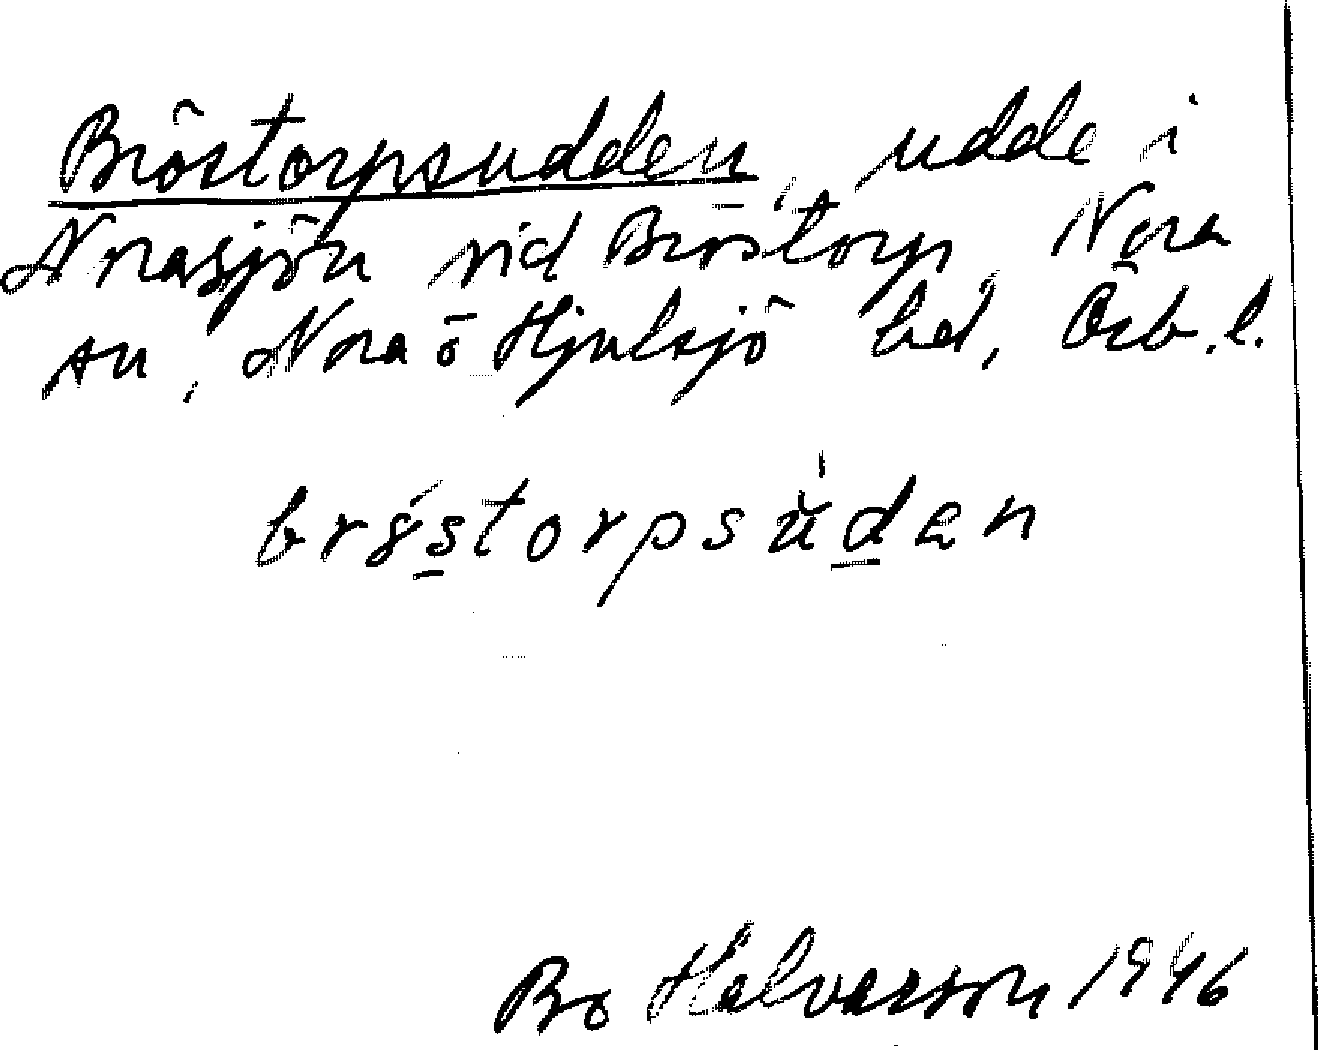 Bröstorpsudden, udde i
Norasjön vid Bröstorp, Nora
sn, Nora o Hjulsjö bd, Örb. l.
brɣ́s̲torpsu̇̀d̲ən
Bo Halvarson 1946